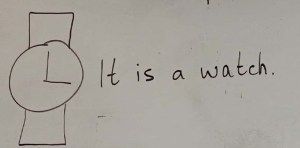 It is a watch.